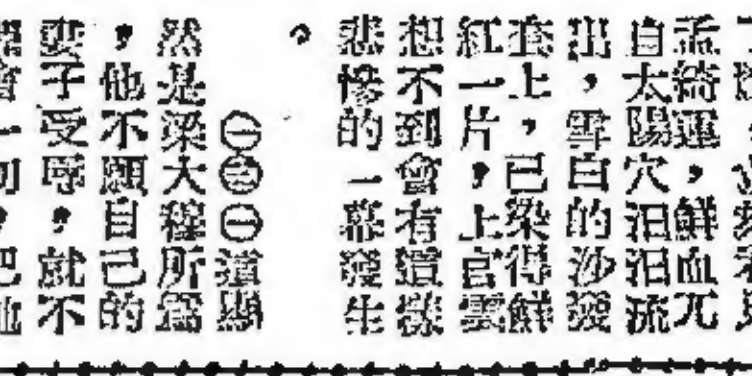 孟綺運，鮮血兀
自太陽穴汩汩流
出，雪白的沙發
套上，已染得鮮
紅一片，上官雲
想不到會有這樣
悲慘的一幕發生
。
㊀㊂㊀這顯
然是梁大程所爲
，他不願自己的
妻子受辱，就不
會一